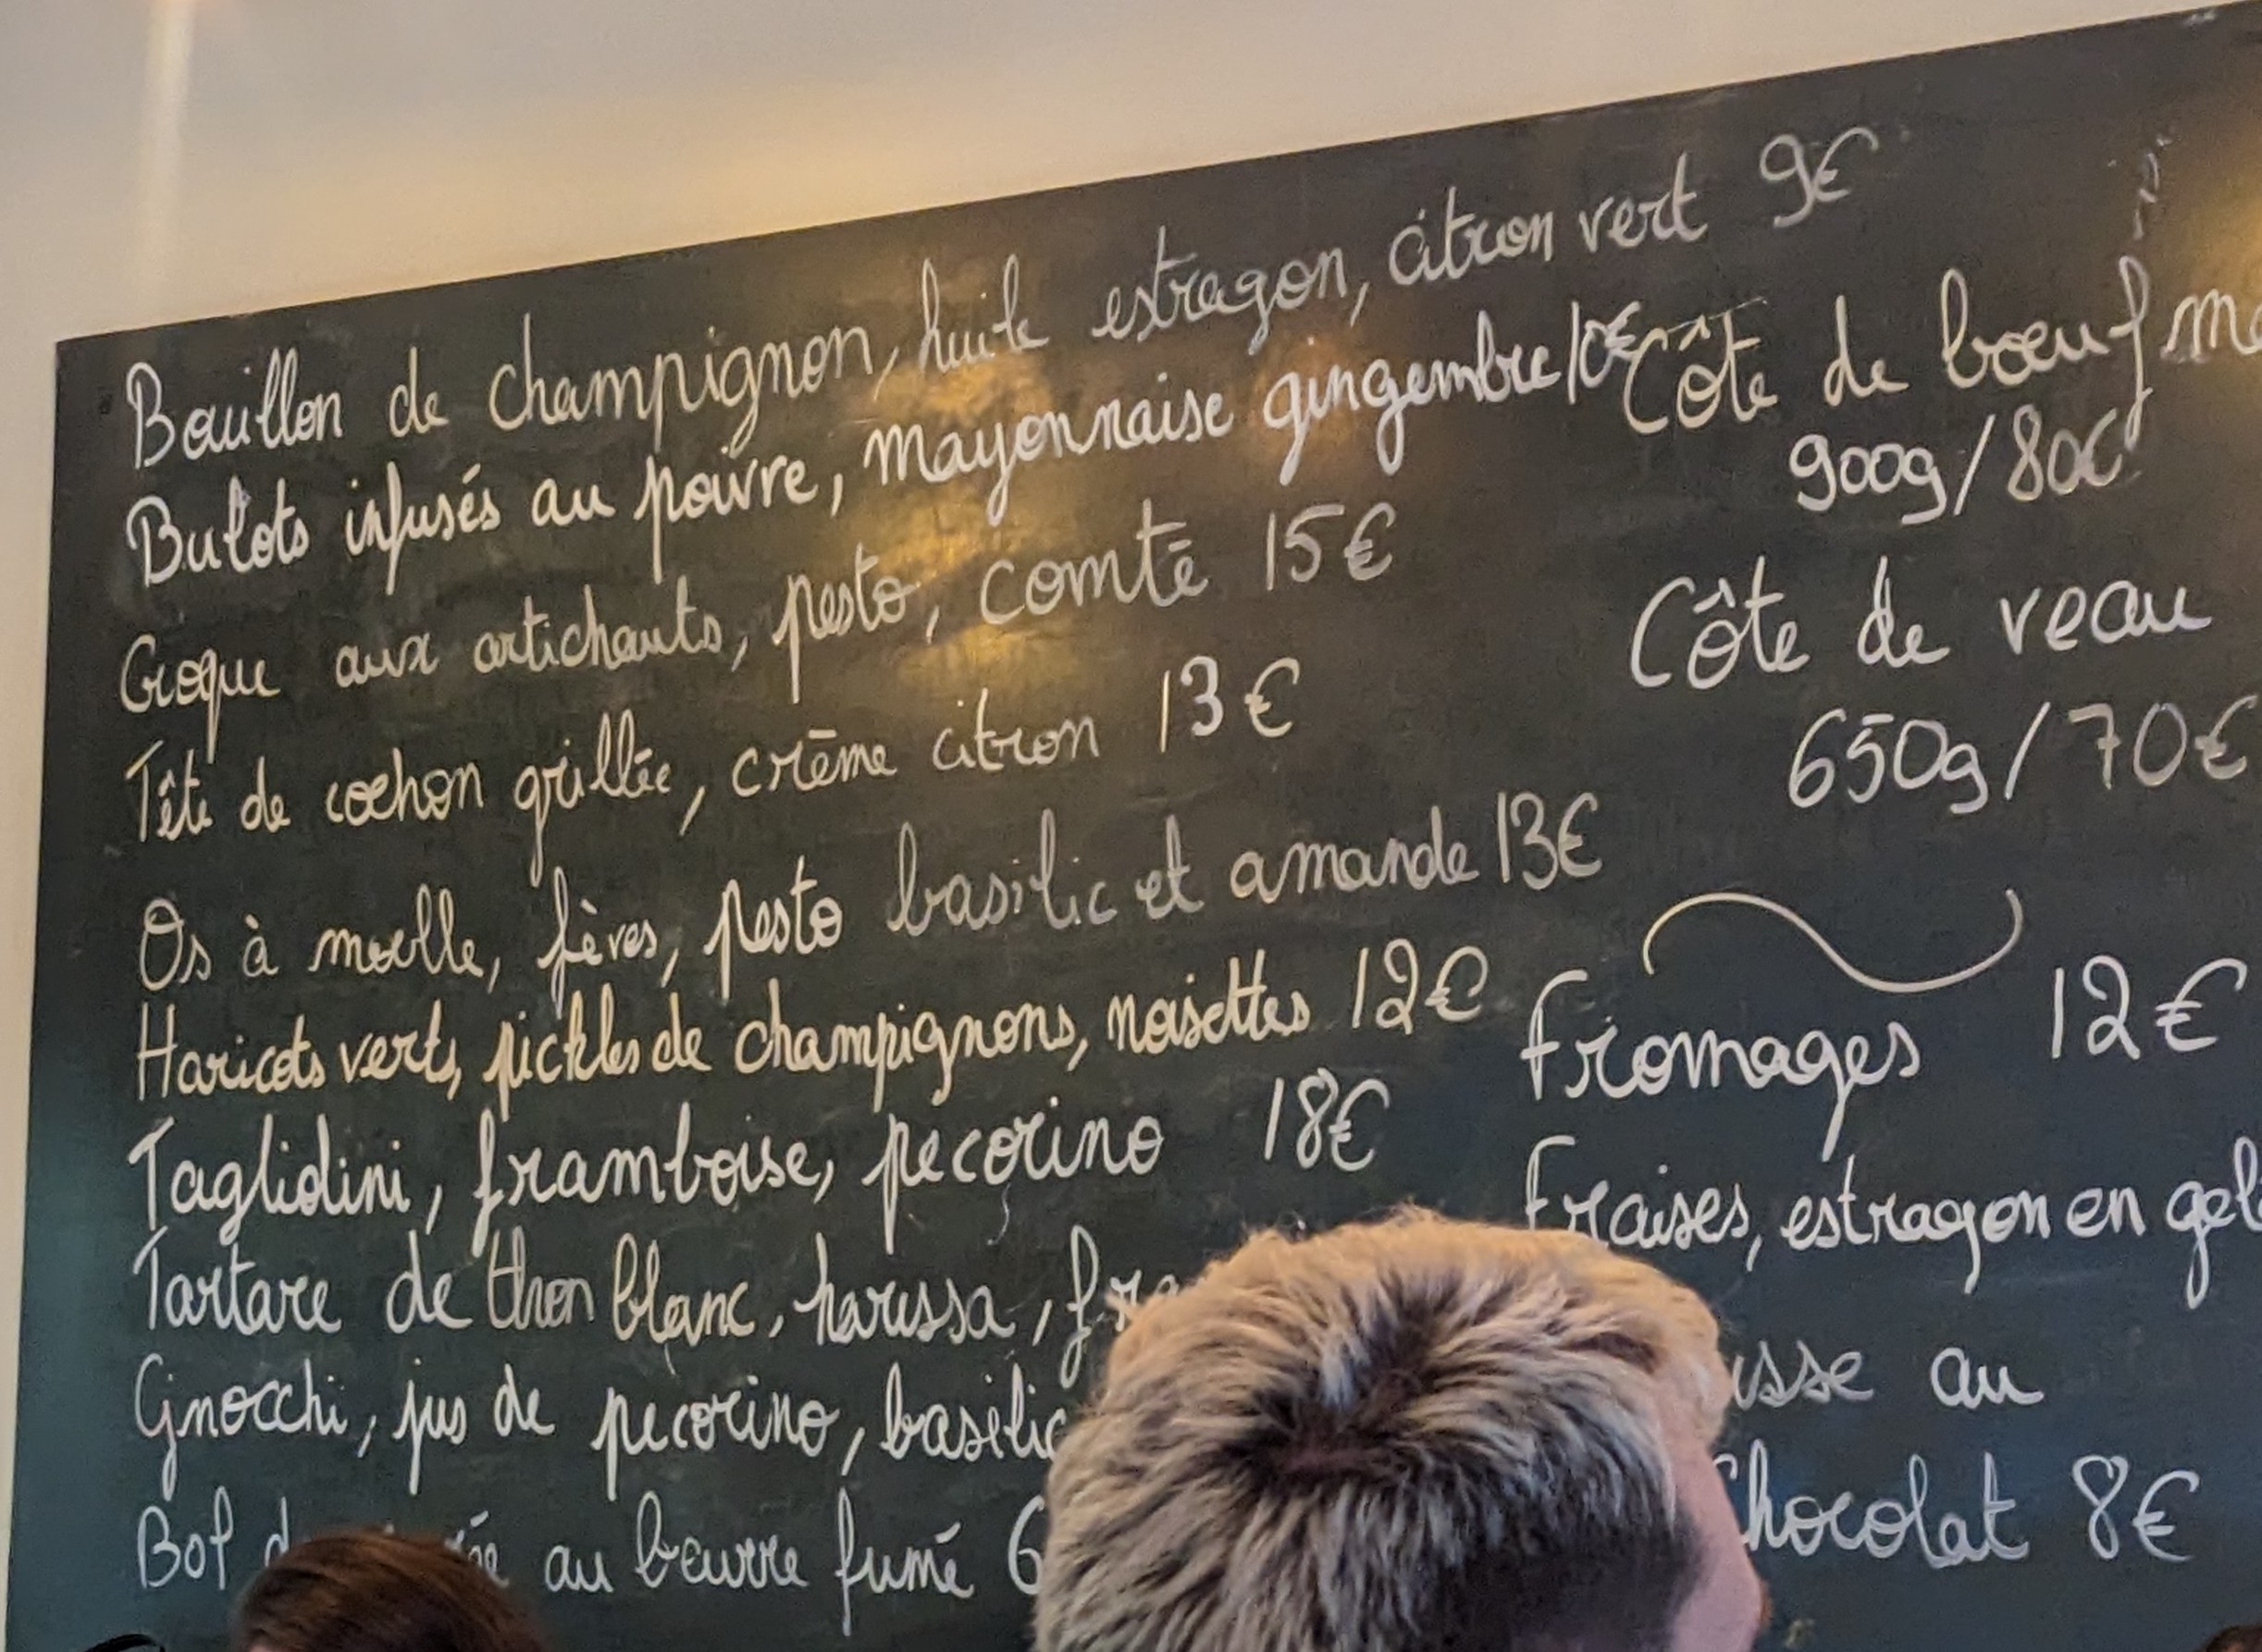 Bouillon de champignon, huile estragon, citron vert 9€
Bulots infusés au poivre, mayonnaise gingembre 10€
Croque aux artichauts, pesto, comté 15€
Tête de cochon grillée, crème citron 13€
Os à moelle, fèves, pesto basilic et amande 13€
Haricots verts, pickles de champignons, noisettes 12€
Tagliolini, framboise, pecorino 18€
Tartare de thon blanc, harissa,
Gnocchi, jus de pecorino, basilic
Bol au beurre fumé 6
Côte de bœuf
900g/80€
Côte de veau
650g/70€
Fromages 12€
Fraises, estragon en
au
Chocolat 8€